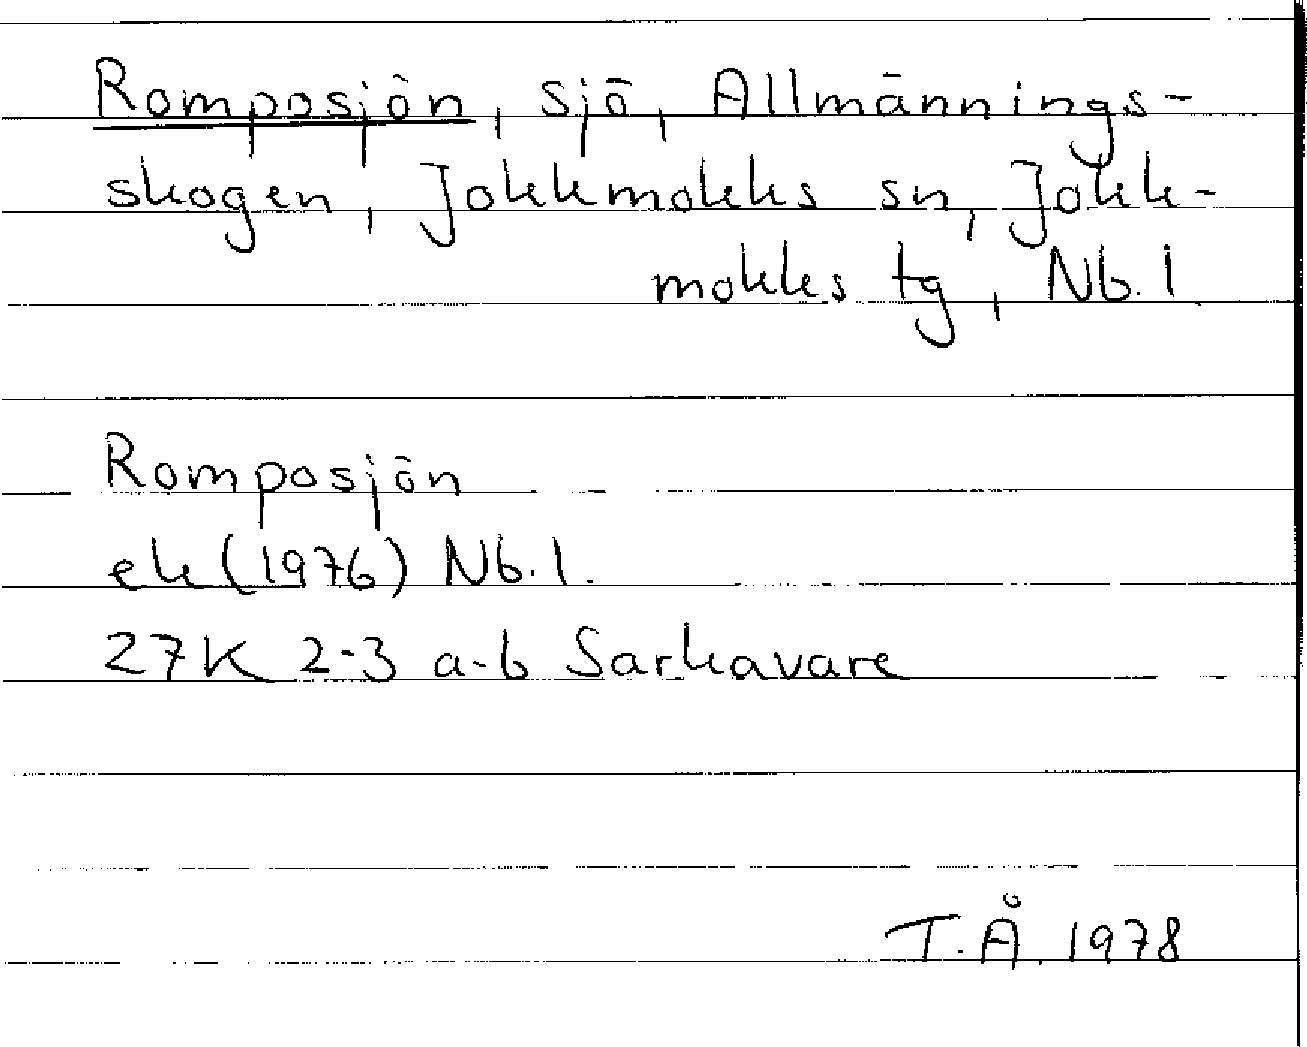 Romposjön, sjö, Allmännings-
skogen, Jokkmokks sn, Jokk-
mokks tg, Nb. l.
Romposjön
ek (1976) Nb. l.
27K 2-3 a-b Sarkavare
T.Å. 1978